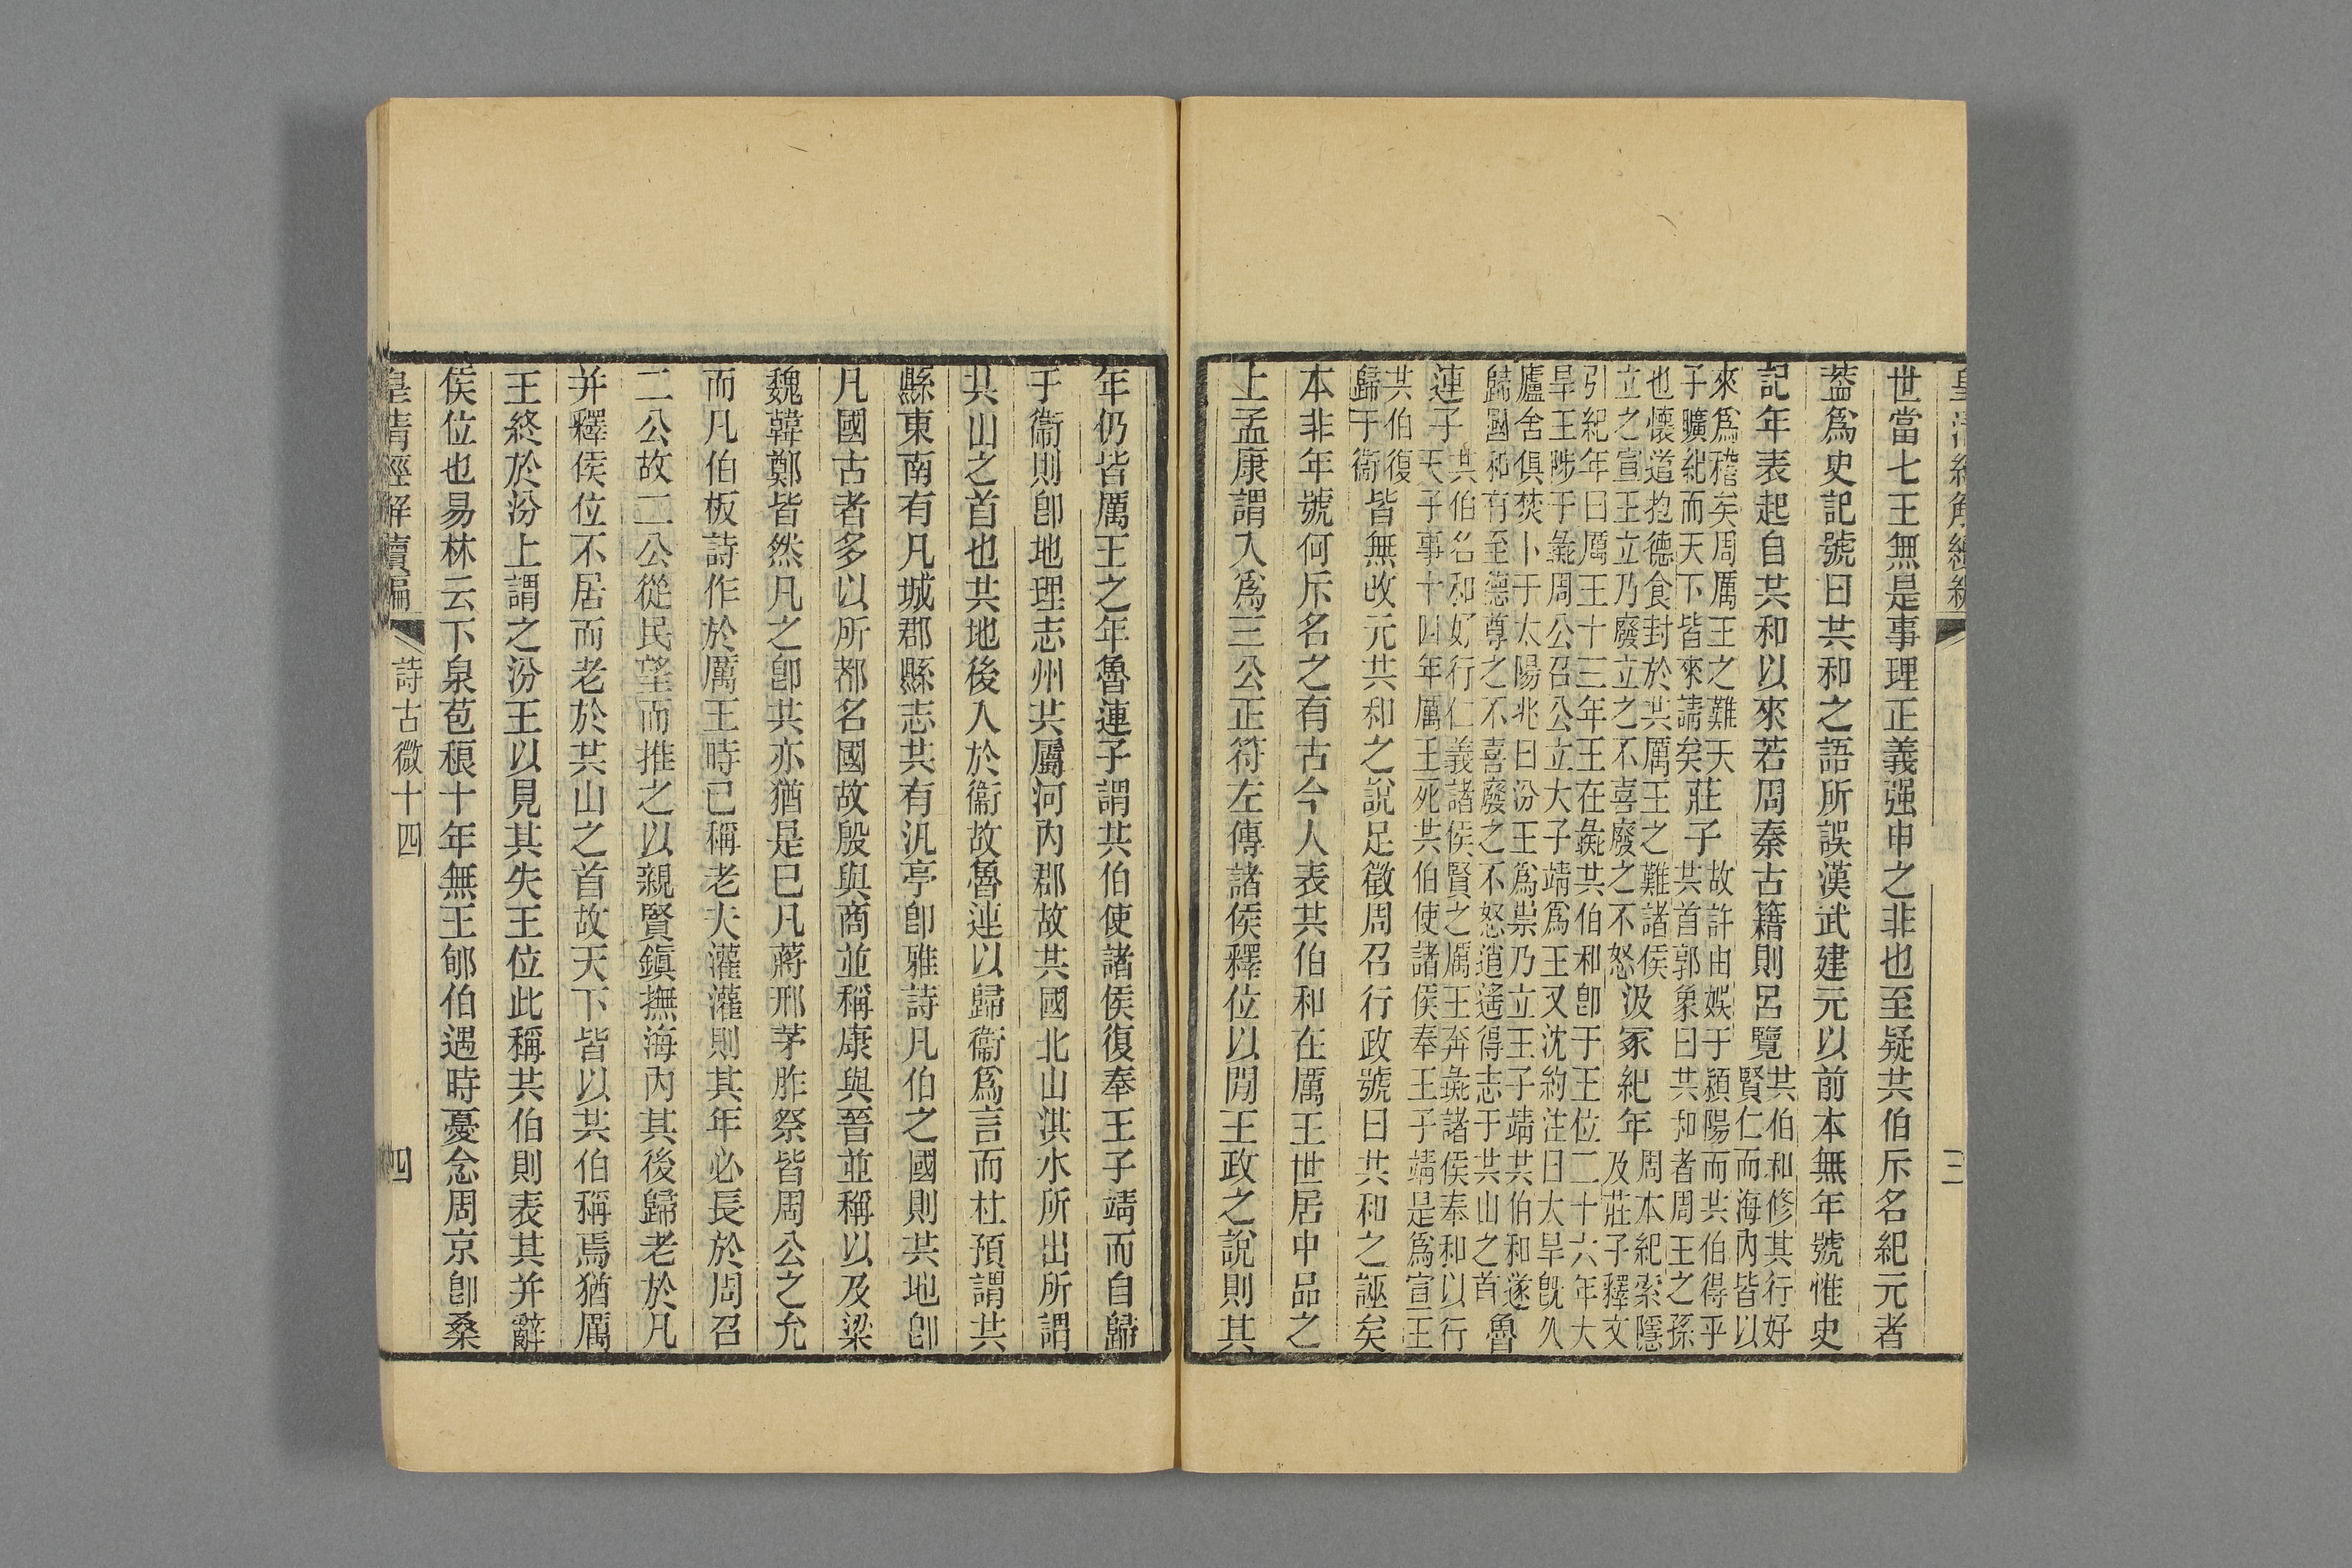 皇清經解續編
三
世當七王無是事理正義强申之非也至疑共伯斥名紀元者
葢爲史記號曰共和之語所誤漢武建元以前本無年號惟史
記年表起自共和以來若周秦古籍則呂覽
共伯和修其行好
賢仁而海內皆以
來爲稽矣周厲王之難天
子曠紀而天下皆來請矣
莊子
故許由娛于潁陽而共伯得乎
共首郭象曰共和者周王之孫
也懷道抱德食封於共厲王之難諸侯
立之宣王立乃廢立之不喜廢之不怒
汲冢紀年
周本紀索隱
及莊子釋文
引紀年曰厲王十三年王在彘共伯和卽于王位二十六年大
旱王陟于彘周公召公立大子靖爲王又沈約注曰大旱旣久
廬舍俱焚卜于太陽兆曰汾王爲祟乃立王子靖共伯和遂
歸國和有至德尊之不喜廢之不怒逍遙得志于共山之首
魯
連子
共伯名和好行仁義諸侯賢之厲王奔彘諸侯奉和以行
天子事十四年厲王死共伯使諸侯奉王子靖是爲宣王
共伯復
歸于衞
皆無改元共和之說足徵周召行政號曰共和之誣矣
本非年號何斥名之有古今人表共伯和在厲王世居中品之
上孟康謂入爲三公正符左傳諸侯釋位以閒王政之說則其
年仍皆厲王之年魯連子謂共伯使諸侯復奉王子靖而自歸
于衞則卽地理志州共屬河內郡故共國北山淇水所出所謂
共山之首也共地後入於衞故魯連以歸衞爲言而杜預謂共
縣東南有凡城郡縣志共有汎亭卽雅詩凡伯之國則共地卽
凡國古者多以所都名國故殷與商並稱康與晉並稱以及梁
魏韓鄭皆然凡之卽共亦猶是巳凡蔣邢茅胙祭皆周公之允
而凡伯板詩作於厲王時已稱老夫灌灌則其年必長於周召
二公故二公從民望而推之以親賢鎭撫海內其後歸老於凡
并釋侯位不居而老於共山之首故天下皆以共伯稱焉猶厲
王終於汾上謂之汾王以見其失王位此稱共伯則表其并辭
侯位也易林云下泉苞稂十年無王郇伯遇時憂念周京卽桑
皇清經解續編
詩古微十四
四